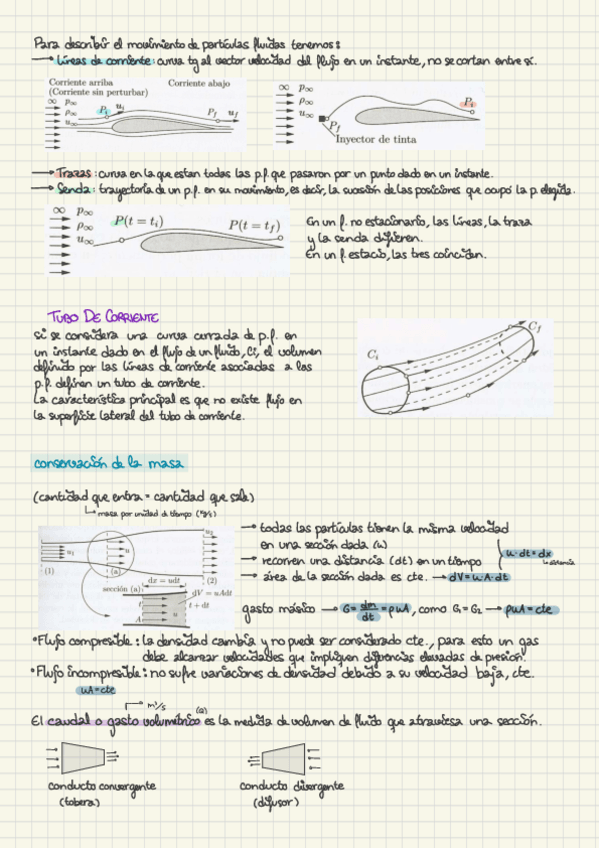 Para describir el movimiento de partículas fluidas tenemos:
→ Líneas de corriente: curva tg al vector velocidad del flujo en un instante, no se cortan entre sí.
Corriente arriba
(Corriente sin perturbar)
Corriente abajo
∞ p∞
ρ∞
u∞
Pi
ui
Pf
uf
∞ p∞
ρ∞
u∞
Pi
Pf
Inyector de tinta
→ Trazas: curva en la que estan todas las p.f que pasaron por un punto dado en un instante.
→ Senda: trayectoria de un p.f. en su movimiento, es decir, la sucesión de las posiciones que ocupó la p. elegida.
∞ p∞
ρ∞
u∞
P(t = ti)
P(t = tf)
En un f. no estacionario, las líneas, la traza
y la senda difieren.
En un f. estacio, las tres coinciden.
TUBO DE CORRIENTE
Si se considera una curva cerrada de p.f. en
un instante dado en el flujo de un fluido, Ci, el volumen
definido por las líneas de corriente asociadas a las
p.f. definen un tubo de corriente.
La característica principal es que no existe flujo en
la superficie lateral del tubo de corriente.
Ci
Cf
conservación de la masa
(cantidad que entra = cantidad que sale)
masa por unidad de tiempo (kg/s)
u1
u
u2
(1)
(a)
(2)
dx = udt
sección (a)
dV = uAdt
t
t + dt
A
→ todas las partículas tienen la misma velocidad
en una sección dada (u)
→ recorren una distancia (dt) en un tiempo
u·dt = dx
distancia
→ área de la sección dada es cte. → dV = u·A·dt
gasto másico → G = dm/dt = ρuA, como G1 = G2 → ρuA = cte
•Flujo compresible: la densidad cambia y no puede ser considerado cte., para esto un gas
debe alcanzar velocidades que impliquen diferencias elevadas de presión.
•Flujo incompresible: no sufre variaciones de densidad debido a su velocidad baja, cte.
uA = cte
m³/s
(Q)
El caudal o gasto volumétrico es la medida de volumen de fluido que atraviesa una sección.
conducto convergente
(tobera)
conducto divergente
(difusor)